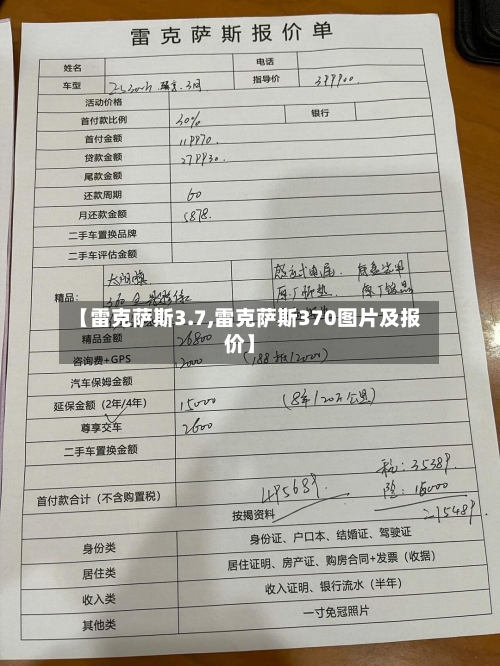 雷克萨斯报价单
姓名 电话
车型 ES300h 指导价 399900.
活动价格
首付款比例 30% 银行
首付金额 119970.
贷款金额 279930.
尾款金额
还款周期 60
月还款金额 5878.
二手车置换品牌
二手车评估金额
太阳膜
精品: 360
【雷克萨斯3.7,雷克萨斯370图片及报
价】
精品金额 26800
咨询费+GPS 12000
汽车保姆金额
延保金额（2年/4年） 15000 (8年/20万公里)
尊享交车 2600
二手车置换金额
税: 35389.
首付款合计（不含购置税） 495689. 险: 16000
按揭资料
身份类 身份证、户口本、结婚证、驾驶证
居住类 居住证明、房产证、购房合同+发票（收据）
收入类 收入证明、银行流水（半年）
其他类 一寸免冠照片